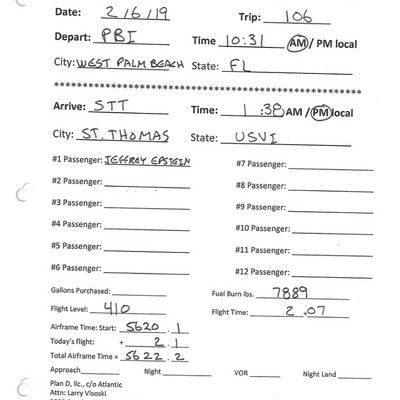 Date: 2/6/19 Trip: 106
Depart: PBI Time 10:31 AM / PM local
City: WEST PALM BEACH State: FL
**************************************************
Arrive: STT Time: 1:38 AM / PM local
City: ST. THOMAS State: USVI
#1 Passenger: JEFFREY EPSTEIN #7 Passenger:
#2 Passenger: #8 Passenger:
#3 Passenger: #9 Passenger:
#4 Passenger: #10 Passenger:
#5 Passenger: #11 Passenger:
#6 Passenger: #12 Passenger:
Gallons Purchased: Fuel Burn lbs. 7889
Flight Level: 410 Flight Time: 2.07
Airframe Time: Start: 5620.1
Today's flight: + 2.1
Total Airframe Time = 5622.2
Approach Night VOR Night Land
Plan D, llc., c/o Atlantic
Attn: Larry Visoski